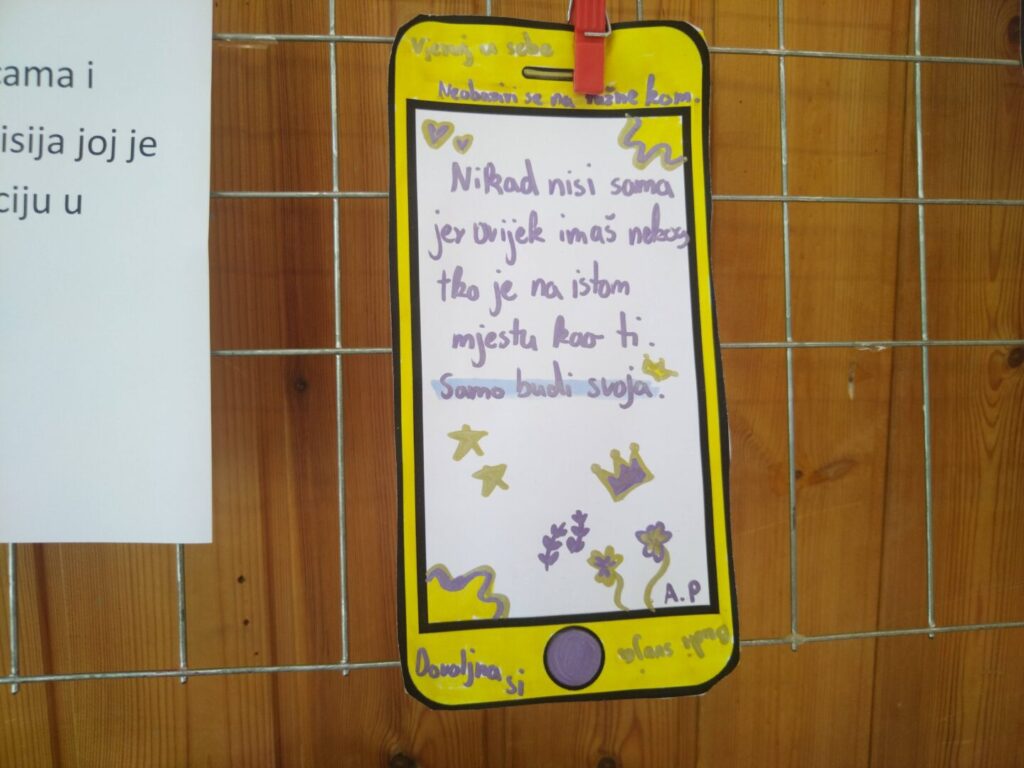 cama i
isija joj je
ciju u
Vjeruj u sebe
Neobaziri se na ružne kom.
Nikad nisi sama
jer uvijek imaš nekog
tko je na istom
mjestu kao ti.
Samo budi svoja.
A.P
Dovoljna
si
Budi svoja